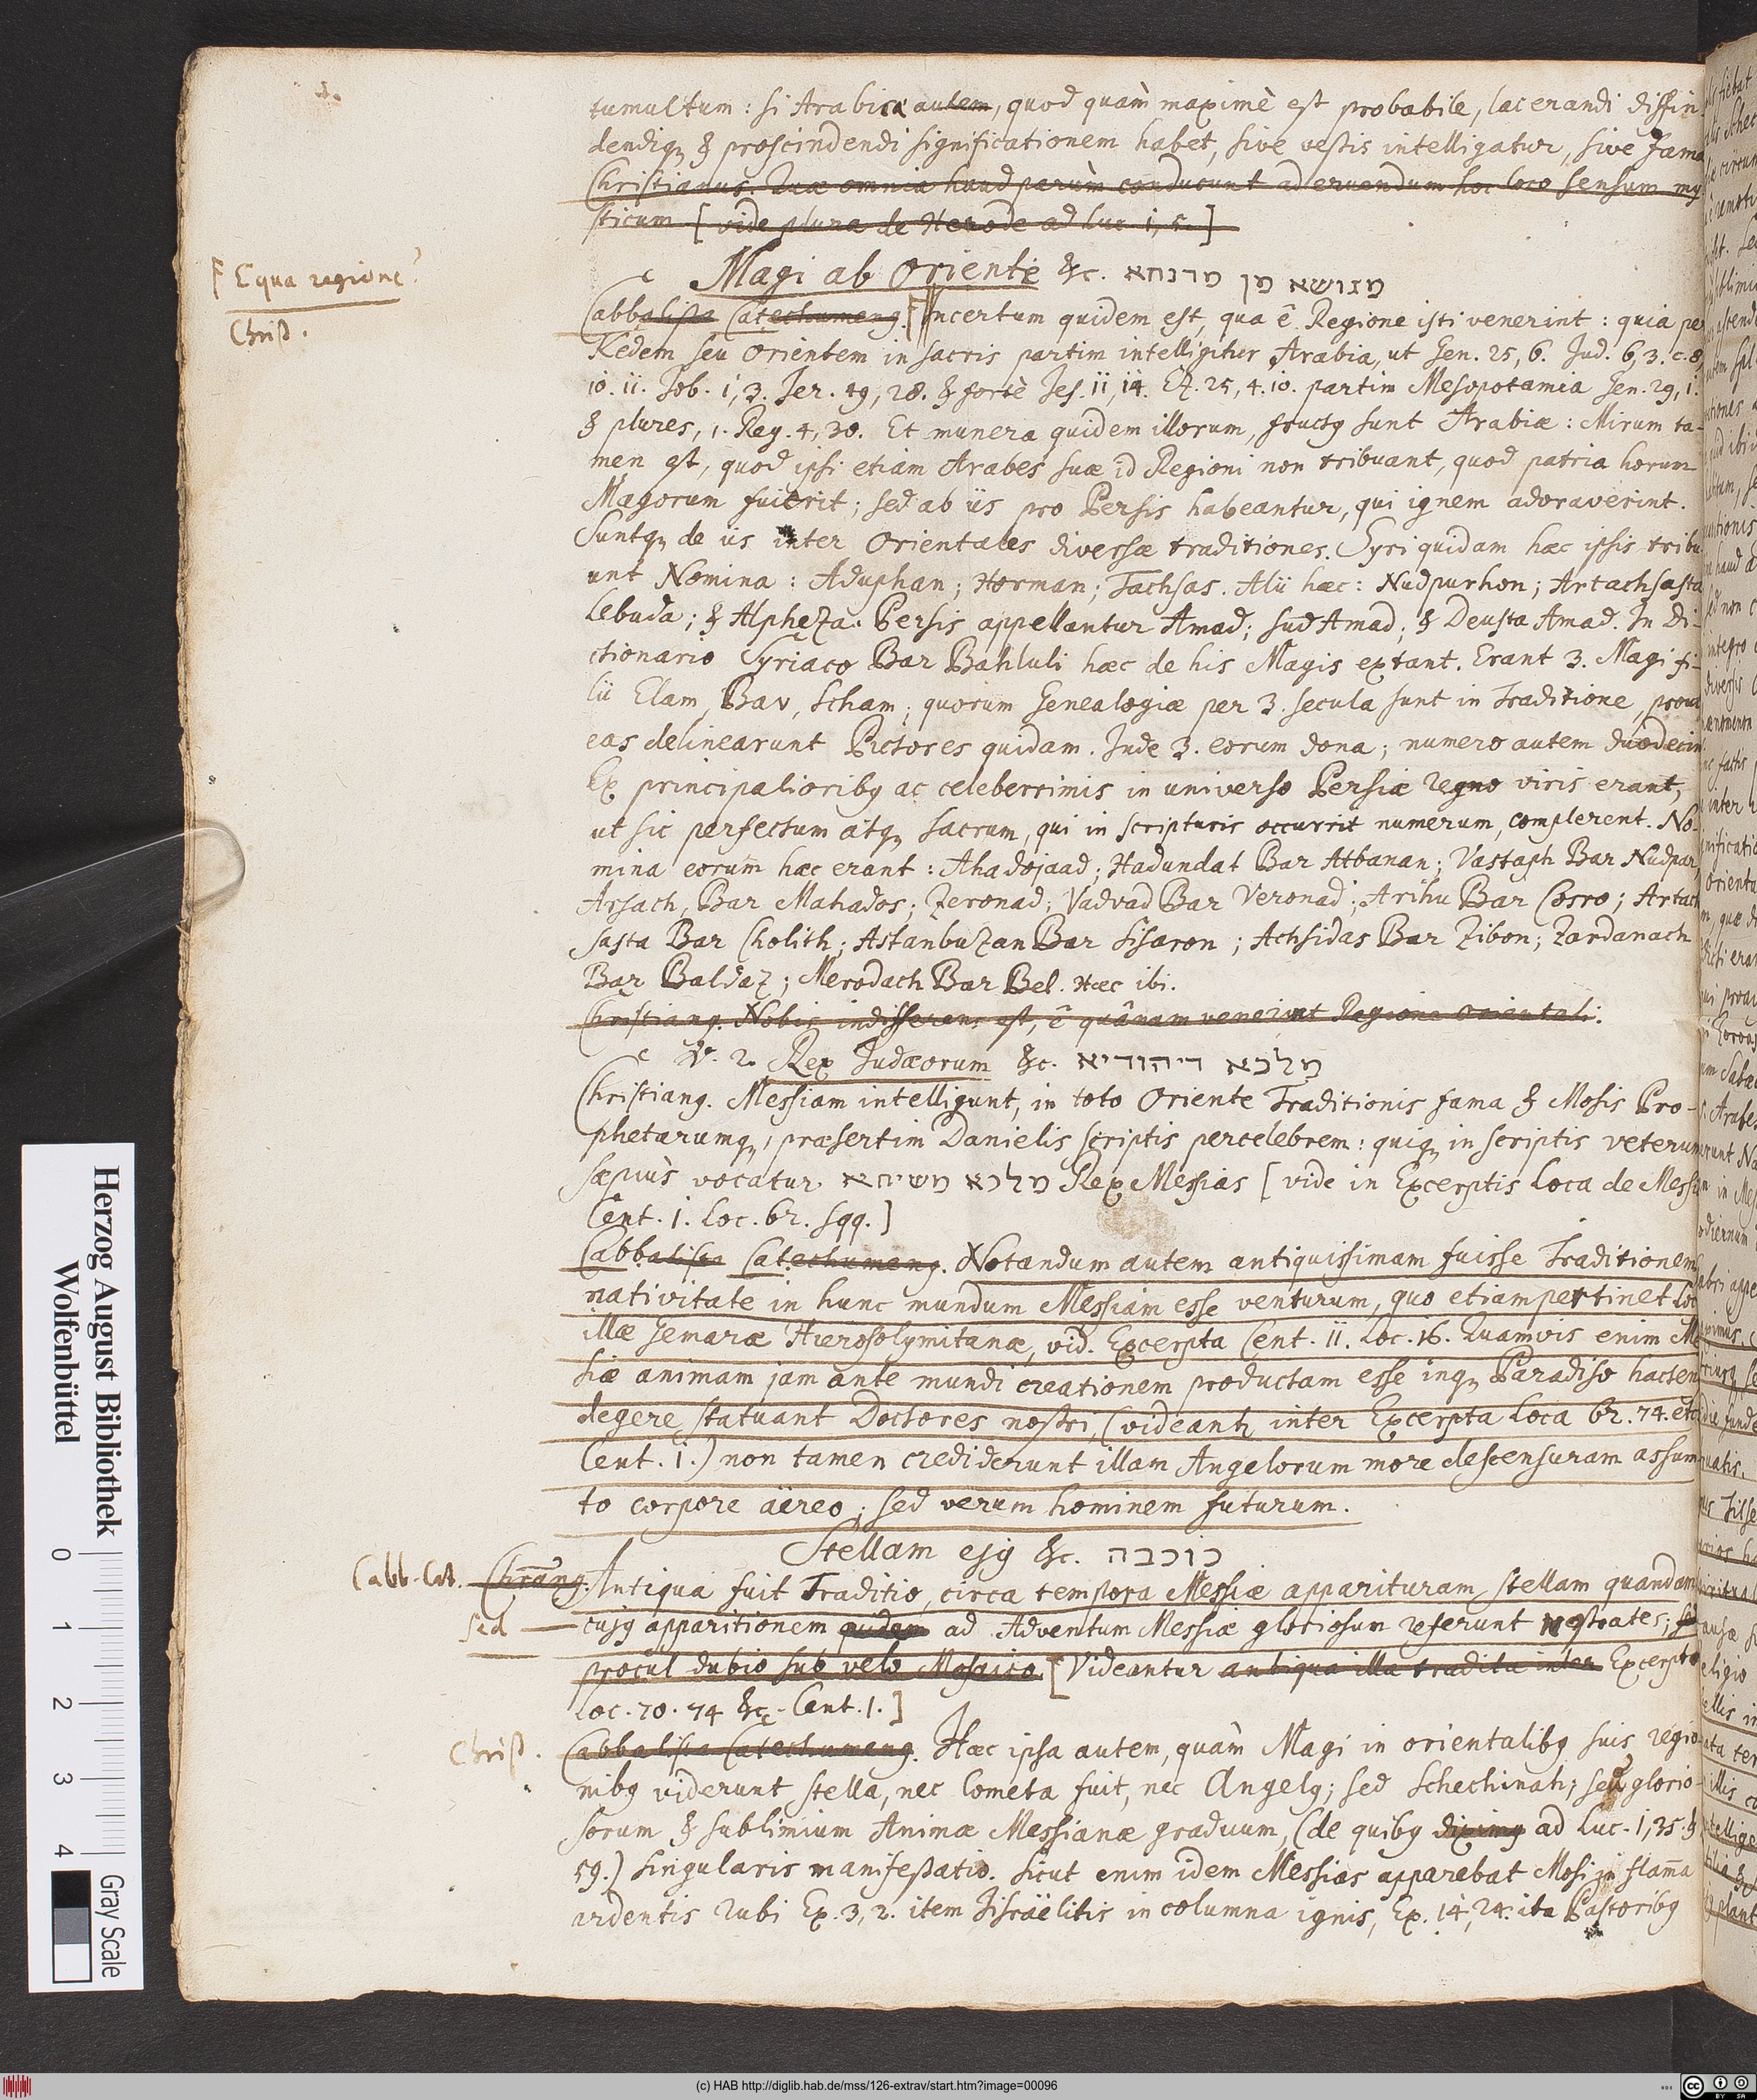 tumultum: si Arabica autem, quod quàm maximè est probabile, lacerandi diffin-
dendiqꝫ & proscindendi significationem habet, sive vestis intelligatur, sive fama
Christianus. Quæ omnia haud parùm conducunt ad eruendum hoc loco sensum my
sticum. [vide plura de Herode ad Luc. 1, 5.]
E qua regione?
c Magi ab Oriente &c. מגושא מן מדנחא
Christ.
Cabbalista Catechumenꝰ. Incertum quidem est, qua ê Regione isti venerint: quia per
Kedem seu Orientem in sacris partim intelligitur Arabia, ut Gen. 25, 6. Jud. 6, 3. c. 8,
10. 11. Job. 1, 3. Jer. 49, 28. & fortè Jes. 11, 14. Ez. 25, 4. 10. partim Mesopotamia Gen. 29, 1.
& plures, 1. Reg. 4, 30. Et munera quidem illorum, fructꝰ sunt Arabiæ: Mirum ta-
men est, quod ipsi etiam Arabes suæ id Regioni non tribuant, quod patria horum
Magorum fuerit; sed ab iis pro Persis habeantur, qui ignem adoraverint.
Suntqꝫ de iis inter Orientales diversæ traditiones. Syri quidam hæc ipsis tribu
unt Nomina: Aduphan; Horman; Tachsas. Alii hæc: Nudpurhon; Artachsasta
Lebuda; & Alpheza. Persis appellantur Amad; sud Amad; & Deusta Amad. In Di-
ctionario Syriaco Bar Bahluli hæc de his Magis extant. Erant 3. Magi fi-
lii Elam, Bav, Scham; quorum Genealogiæ per 3. secula sunt in Traditione, prout
eas delinearunt Pictores quidam. Inde 3. eorum dona; numero autem duodecim
Ex principalioribꝰ ac celeberrimis in universo Persiæ regno viris erant,
ut sic perfectum atqꝫ sacrum, qui in scripturis occurrit numerum, complerent. No-
mina eorum hæc erant: Ahadojaad; Hadundat Bar Atbanan; Vastaph Bar Nudpar,
Arsach, Bar Mahados; Zeronad; Vadvad Bar Veronad; Arihu Bar Cosro; Artach
sasta Bar Cholith; Astanbuzan Bar Sisaron; Achsidas Bar Zibon; Zardanach
Bar Baldaz; Merodach Bar Bel. Hæc ibi.
Christianꝰ. Nobis indifferens est, ê quânam venerint Regione orientali.
c V. 2. Rex Judæorum &c. מלכא דיהודיא
Christianꝰ. Messiam intelligunt, in toto Oriente Traditionis fama & Mosis Pro-
phetarumqꝫ, præsertim Danielis scriptis percelebrem: quiqꝫ in scriptis veterum
sæpiùs vocatur מלכא משיחא Rex Messias [vide in Excerptis Loca de Messia
Cent. 1. Loc. 62. sqq.]
Cabbalista Catechumenꝰ. Notandum autem antiquissimam fuisse Traditionem
nativitate in hunc mundum Messiam esse venturum, quo etiam pertinet Loc
illæ Gemaræ Hierosolymitanæ, vid. Excerpta Cent. 11. Loc. 16. Quamvis enim Me
siæ animam jam ante mundi creationem productam esse inqꝫ Paradiso hacten
degere statuant Doctores nostri, (videantꝛ inter Excerpta Loca 62. 74. etc
Cent. 1.) non tamen crediderunt illam Angelorum more descensuram assum
to corpore aëreo; sed verum hominem futurum.
Stellam ejꝰ &c. כוכבה
Cabb. Cat. Chr̃anꝰ. Antiqua fuit Traditio, circa tempora Messiæ apparituram stellam quandam
sed cujꝰ apparitionem quidem ad Adventum Messiæ gloriosum referunt nostrates; sed
procul dubio sub velo Mosaico. [Videantur antiqua illa tradita inter Excerpta
Loc. 70. 74 &c. Cent. 1.]
Christ. Cabbalista Catechumenꝰ. Hæc ipsa autem, quàm Magi in orientalibꝰ suis regio
nibꝰ viderunt stella, nec Cometa fuit, nec Angelꝰ; sed Schechinah; seu glorio-
sorum & sublimium Animæ Messianæ graduum, (de quibꝰ diximꝰ ad Luc. 1, 35. &
59.) singularis manifestatio. Sicut enim idem Messias apparebat Mosi in flam̃a
ardentis Rubi Ex. 3, 2. item Jisraëlitis in columna ignis, Ex. 14, 24. ita Pastoribꝰ
Herzog August Bibliothek
Wolfenbüttel
0 1 2 3 4
Gray Scale
(c) HAB http://diglib.hab.de/mss/126-extrav/start.htm?image=00096